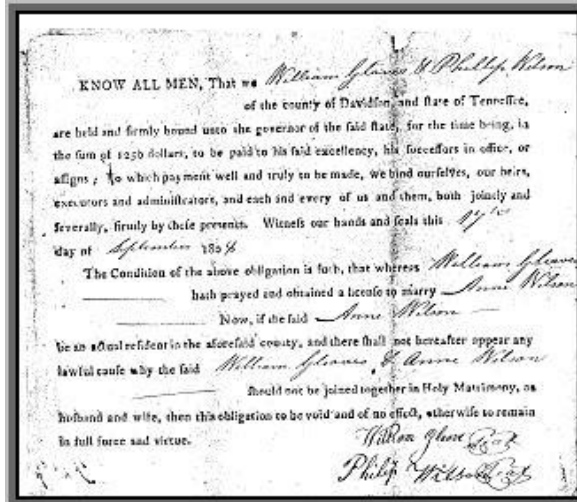 KNOW ALL MEN, That we William Gleaves & Phillip Wilson
of the county of Davidson, and state of Tennessee,
are held and firmly bound unto the governor of the said state, for the time being, in
the sum of 1250 dollars, to be paid to his said excellency, his successors in office, or
assigns; to which payment well and truly to be made, we bind ourselves, our heirs,
executors and administrators, and each and every of us and them, both jointly and
severally, firmly by these presents. Witness our hands and seals this 17th
day of September 180
The Condition of the above obligation is such, that whereas William Gleaves
hath prayed and obtained a license to marry Anne Wilson
Now, if the said Anne Wilson
be an actual resident in the aforesaid county, and there shall not hereafter appear any
lawful cause why the said William Gleaves & Anne Wilson
should not be joined together in Holy Matrimony, as
husband and wife, then this obligation to be void and of no effect, otherwise to remain
in full force and virtue.
Seal
Philip Wilson Seal